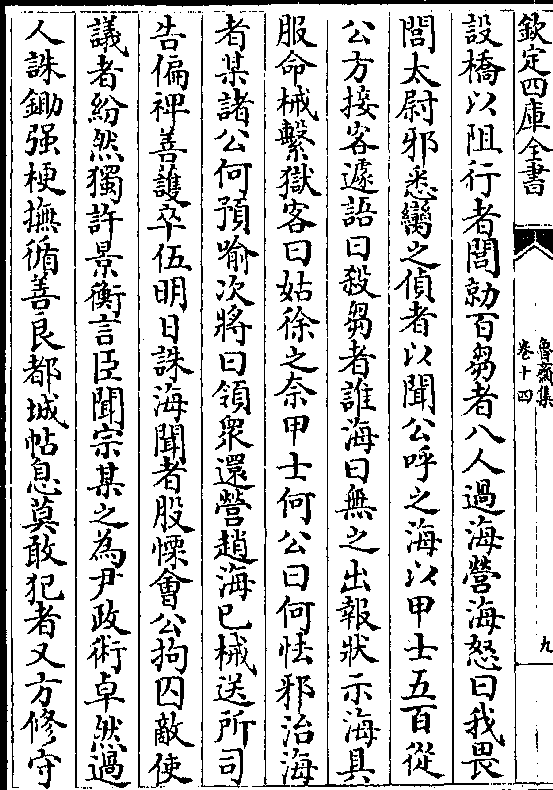 欽定四庫全書
魯齋集
卷十四
九
設橋以阻行者閭勍百芻者八人過海營海怒曰我畏
閭太尉邪悉臠之偵者以聞公呼之海以甲士五百從
公方接客遽語曰殺芻者誰海曰無之出報狀示海具
服命械繫獄客曰姑徐之奈甲士何公曰何怯邪治海
者某諸公何預喻次將曰領衆還營趙海已械送所司
告偏裨善護卒伍明日誅海聞者股慄㑹公拘囚敵使
議者紛然獨許景衡言臣聞宗某之為尹政術卓然過
人誅鋤强梗撫循善良都城帖息莫敢犯者又方修守